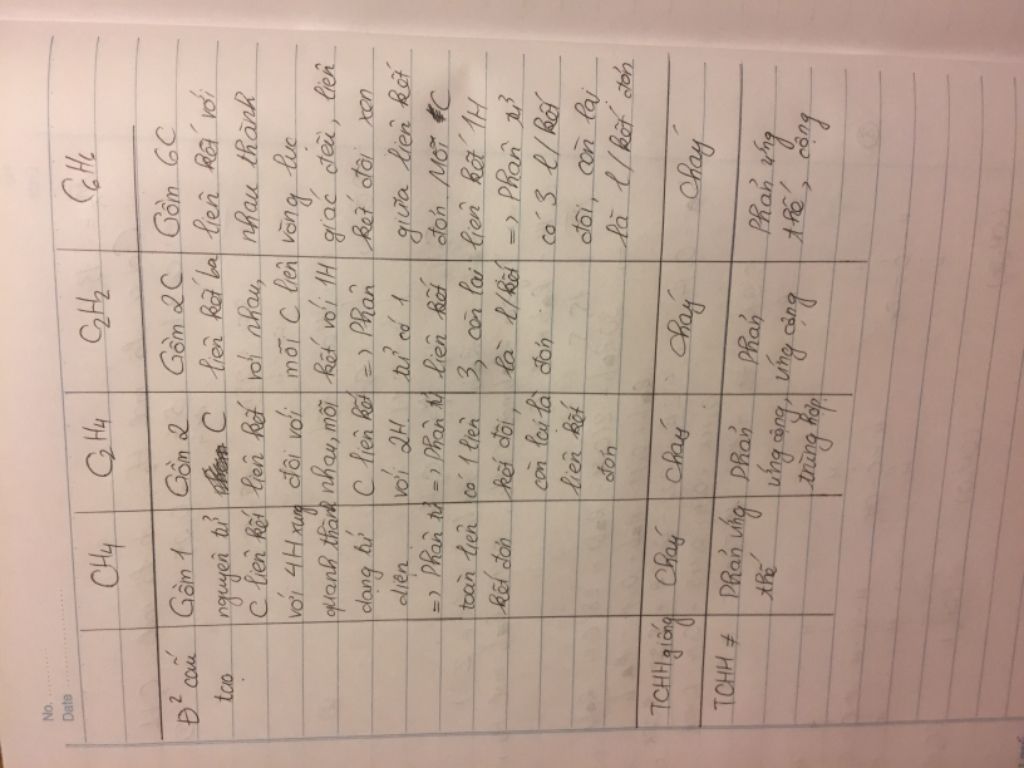 No. ..........
Date ..........
CH4
C2H4
C2H2
C6H6
Đ² cấu
tạo
Gồm 1
nguyên tử
C liên kết
với 4H xung
quanh thành
dạng tứ
diện
=> Phân tử
toàn liên
kết đơn
Gồm 2
C
liên kết
đôi với
nhau, mỗi
C liên kết
với 2H
=> Phân tử
có 1 liên
kết đôi,
còn lại là
liên kết
đơn
Gồm 2C
liên kết ba
với nhau,
mỗi C liên
kết với 1H
=> Phân
tử có 1
liên kết
3, còn lại
là l/kết
đơn
Gồm 6C
liên kết với
nhau thành
vòng lục
giác đều, liên
kết đôi xen
giữa liên kết
đơn. Mỗi C
liên kết 1H
=> Phân tử
có 3 l/kết
đôi, còn lại
là l/kết đơn
TCHH giống
Cháy
Cháy
Cháy
Cháy
TCHH ≠
Phản ứng
thế
Phản
ứng cộng,
trùng hợp
Phản
ứng cộng
Phản ứng
thế, cộng